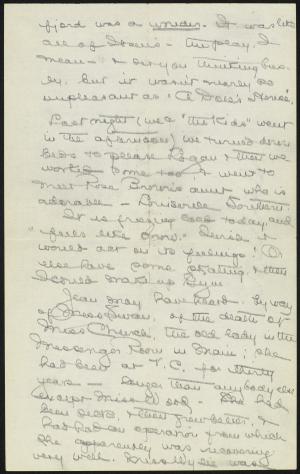 fjord was a wonder. It was like
all of Ibsen's - the play, I
mean - &
but it wasn't nearly so
unpleasant as "A Doll's House".
Last night (we & "the Kids" went
in the afternoon) we turned down
beds to please Logan & then we
worked some too. I went to
meet Rose Brown's aunt who is
adorable - Louisville Southern.
It is freezing cold today and
"feels like snow." I wish it
would act on its feelings! Or
else have some skating & then
I could make up Gym.
Jean may have heard - by way
of Miss Swan, of the death of
Miss Church, the old lady in the
Messenger Room in Main; she
had been at V.C. for thirty
years - longer than anybody else
except Miss Wood - She had
been sick, & then grew better, &
had had an operation from which
she apparently was recovering
very well. Miss Wylie was